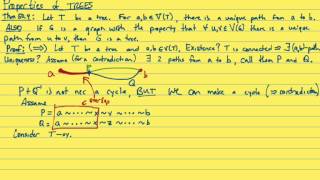 Properties of TREES
Thm 2.4: Let T be a tree. For a,b ∈ V(T), there is a unique path from a to b.
ALSO if G is a graph with the property that ∀ u,v ∈ V(G) there is a unique
path from u to v, then G is a tree.
Proof: (⟹) Let T be a tree and a,b ∈ V(T). Existence? T is connected ⟹ ∃ (a,b)-path
Uniqueness? Assume (for a contradiction) ∃ 2 paths from a to b, call them P and Q.
a b
Q
overlap
is not nec a cycle, BUT we can make a cycle (⟹ contradiction)
Assume
P = a ~ ... ~ x ~ y ~ ... ~ b
Q = a ~ ... ~ x ~ z ~ ... ~ b
Consider T - xy.